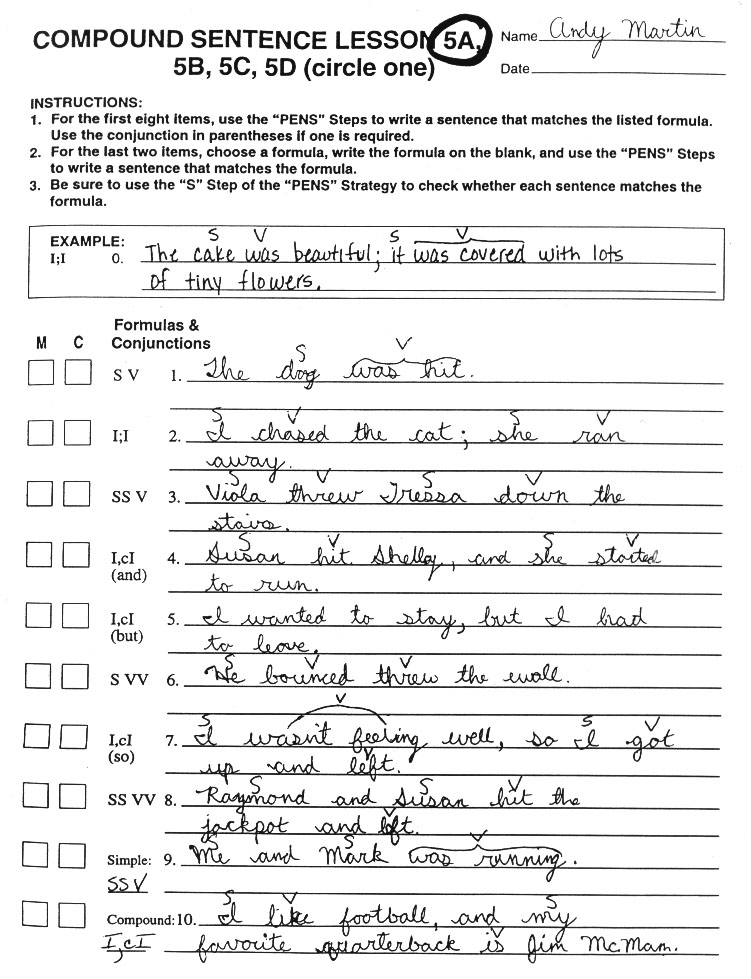 COMPOUND SENTENCE LESSON 5A,
5B, 5C, 5D (circle one)
Name Andy Martin
Date
INSTRUCTIONS:
1. For the first eight items, use the “PENS” Steps to write a sentence that matches the listed formula.
Use the conjunction in parentheses if one is required.
2. For the last two items, choose a formula, write the formula on the blank, and use the “PENS” Steps
to write a sentence that matches the formula.
3. Be sure to use the “S” Step of the “PENS” Strategy to check whether each sentence matches the
formula.
S V S V
EXAMPLE:
I;I 0. The cake was beautiful; it was covered with lots
of tiny flowers.
Formulas &
M C Conjunctions
S V
S V 1. The dog was hit.
S V S V
I;I 2. I chased the cat; she ran
away.
S V S V
SS V 3. Viola threw Tressa down the
stairs.
S V S V
I,cI 4. Susan hit Shelley, and she started
(and) to run.
I,cI 5. I wanted to stay, but I had
(but) to leave.
S V V
S VV 6. He bounced threw the wall.
S V S V
I,cI 7. I wasn't feeling well, so I got
V
(so) up and left.
S S V
SS VV 8. Raymond and Susan hit the
V
jackpot and left.
S S V
Simple: 9. Me and Mark was running.
SSV
S V S
Compound: 10. I like football, and my
V
I,cI favorite quarterback is Jim McMam.